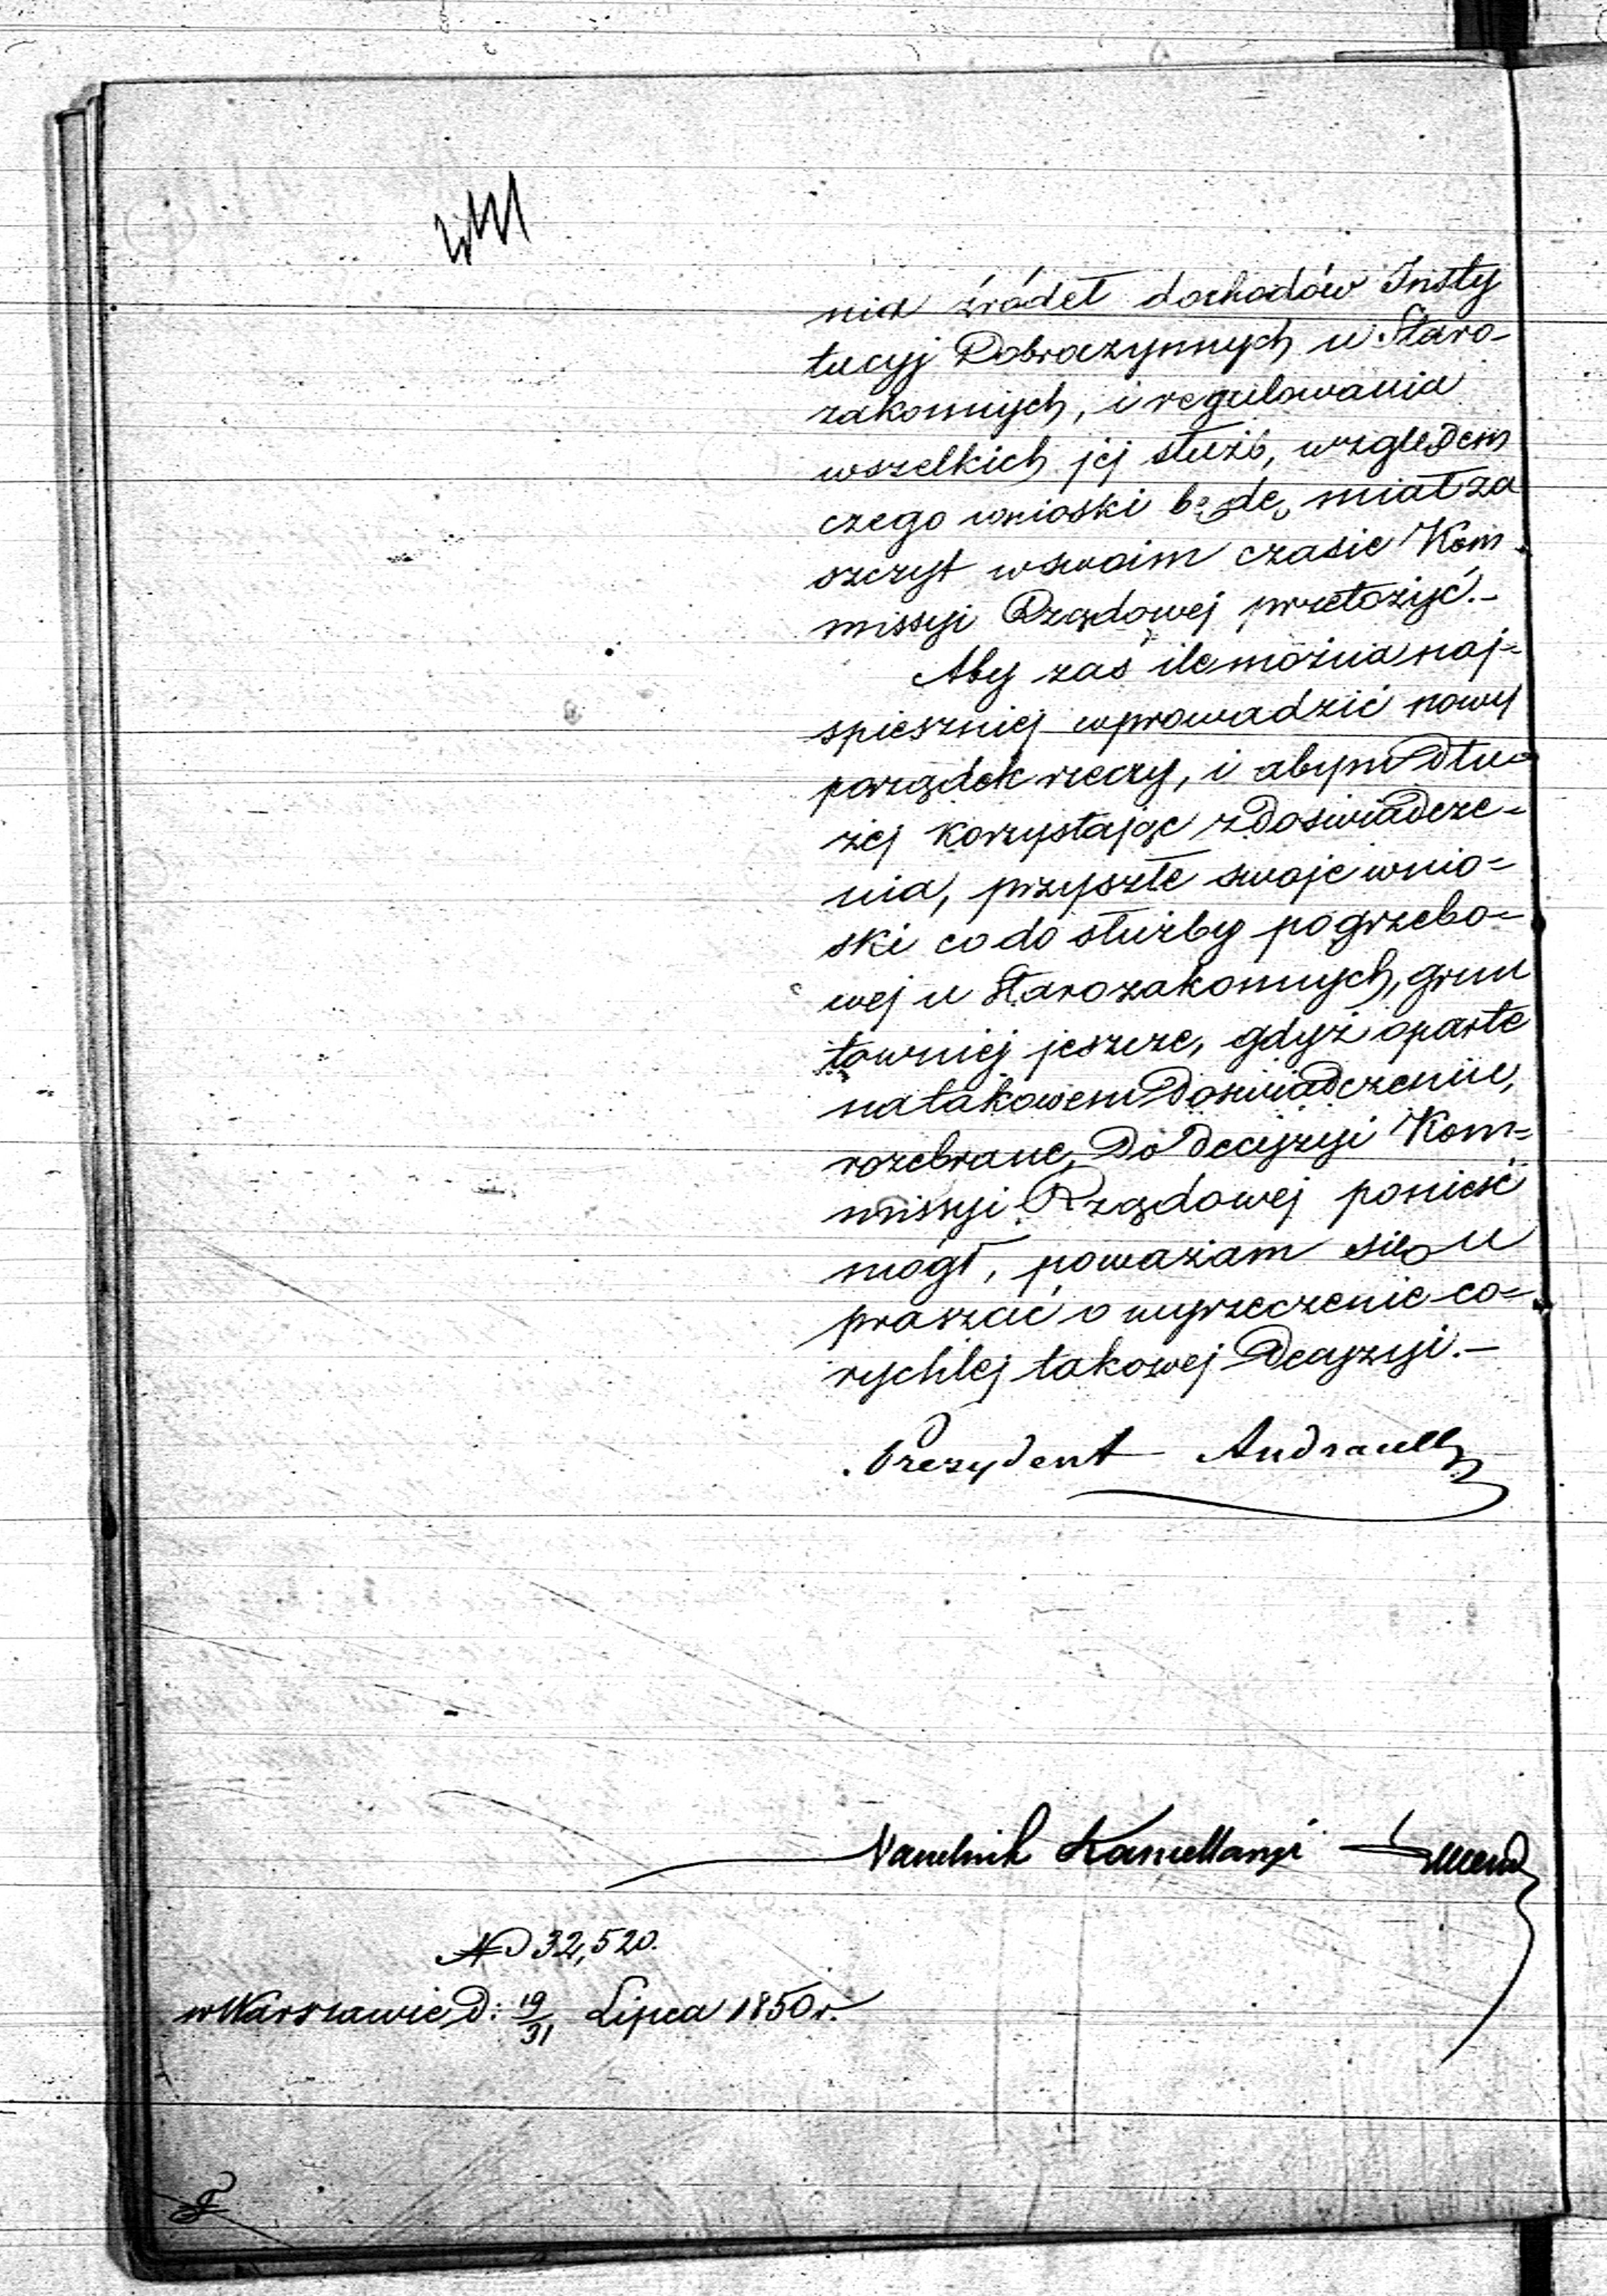 nia źródeł dochodów Insty
tucyj Dobroczynnych u Staro-
zakonnych, i regulowania
wszelkich jej służb, względem
czego wnioski będę miał za
szczyt w swoim czasie Kom-
missyi Rządowej przełożyć.-
Aby zaś ile można naj=
spieszniej wprowadzić nowy
porządek rzeczy, i abym dłu=
żej korzystając z doświadcze=
nia, przyszłe swoje wnio=
ski co do służby pogrzebo=
wej u Starozakonnych, grun
towniej jeszcze, gdyż oparte
na takowem doświadczeniu,
rozebrane, do decyzyi Kom=
missyi Rządowej ponieść
mógł, poważam się u
praszać o wyrzeczenie co=
rychlej takowej Decyzyi.-
Prezydent Andrault
Naczelnik Kancellaryi
N 32,520.
w Warszawie d: 19/31 Lipca 1850 r.